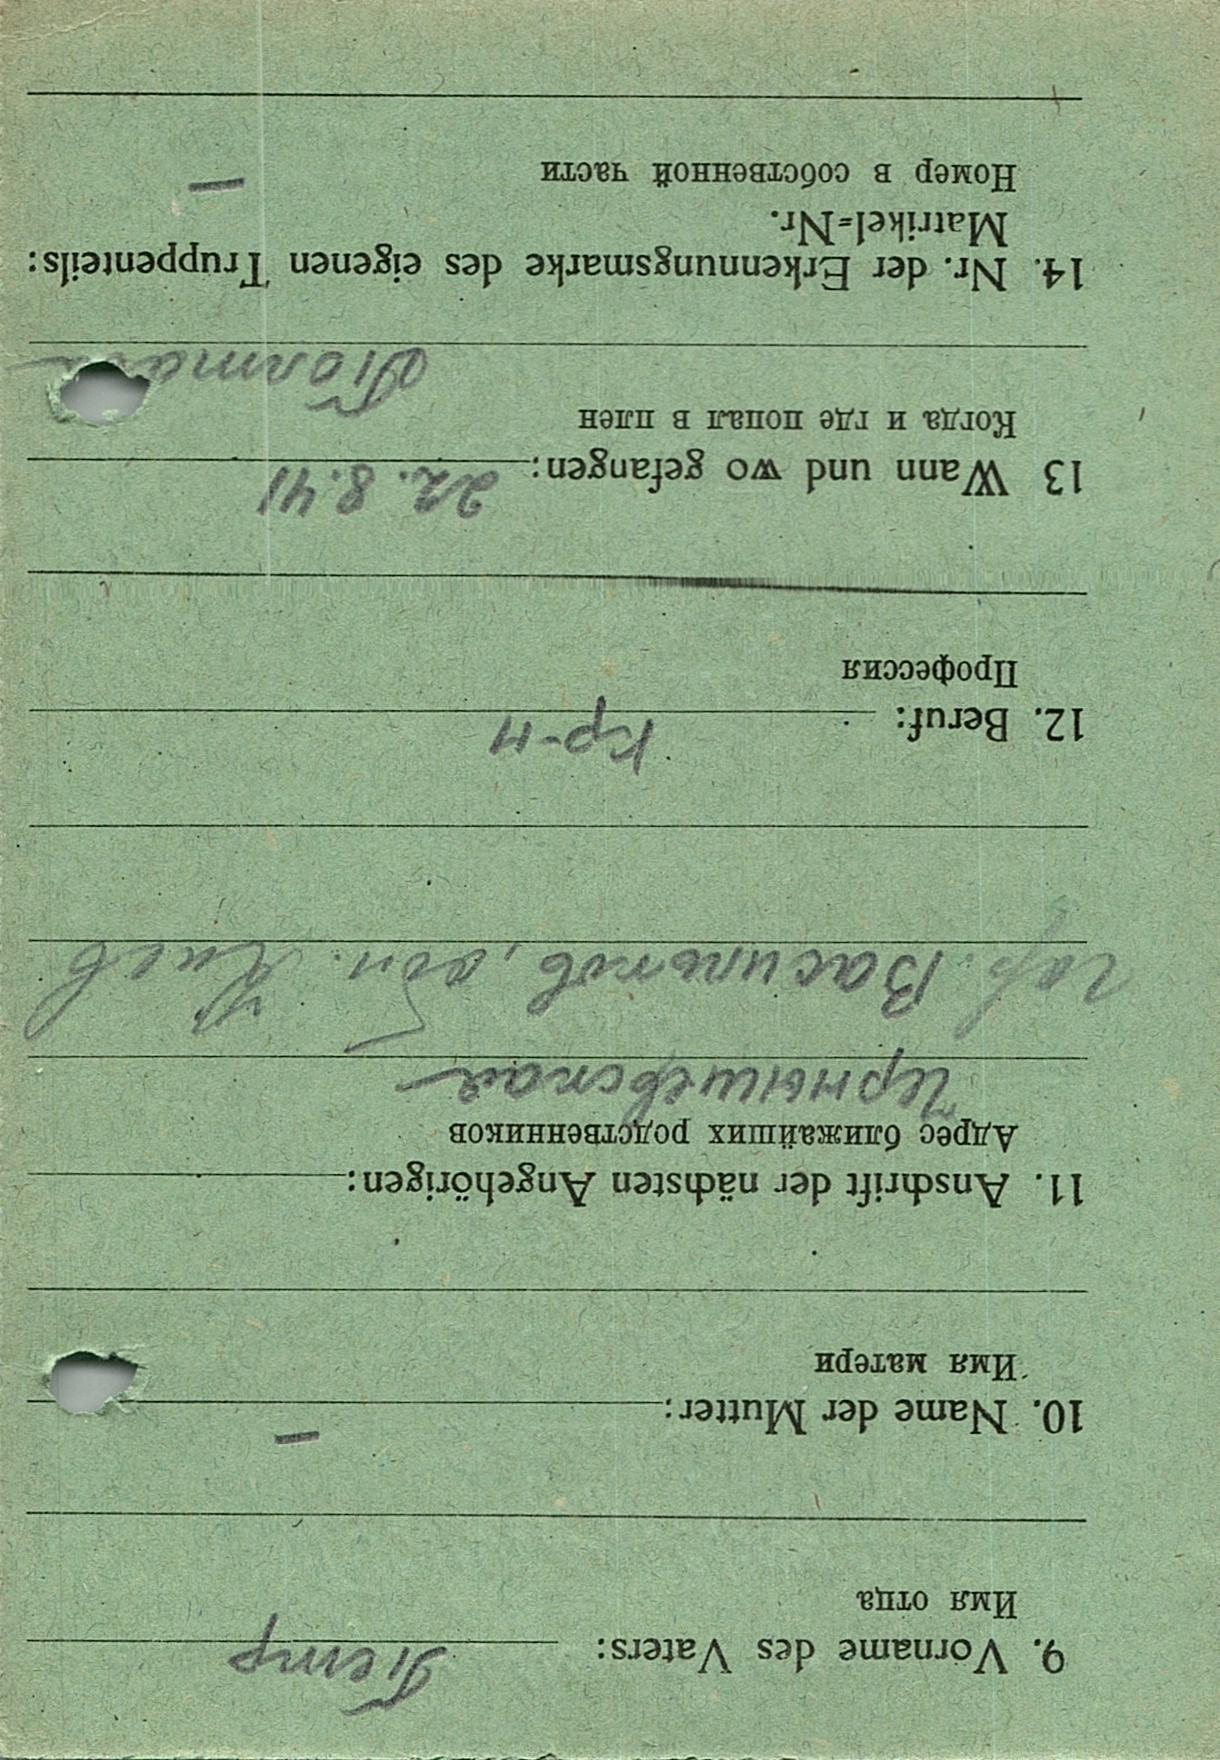 9. Vorname des Vaters: Петр
Имя отца
10. Name der Mutter: —
Имя матери
11. Anschrift der nächsten Angehörigen:
Адрес ближайших родственников
Чернышевская
гор. Васильков, обл. Киев
12. Beruf: кр-н
Профессия
13 Wann und wo gefangen: 22.8.41
Когда и где попал в плен
Полтава
14. Nr. der Erkennungsmarke des eigenen Truppenteils:
Matrikel=Nr.
Номер в собственной части —